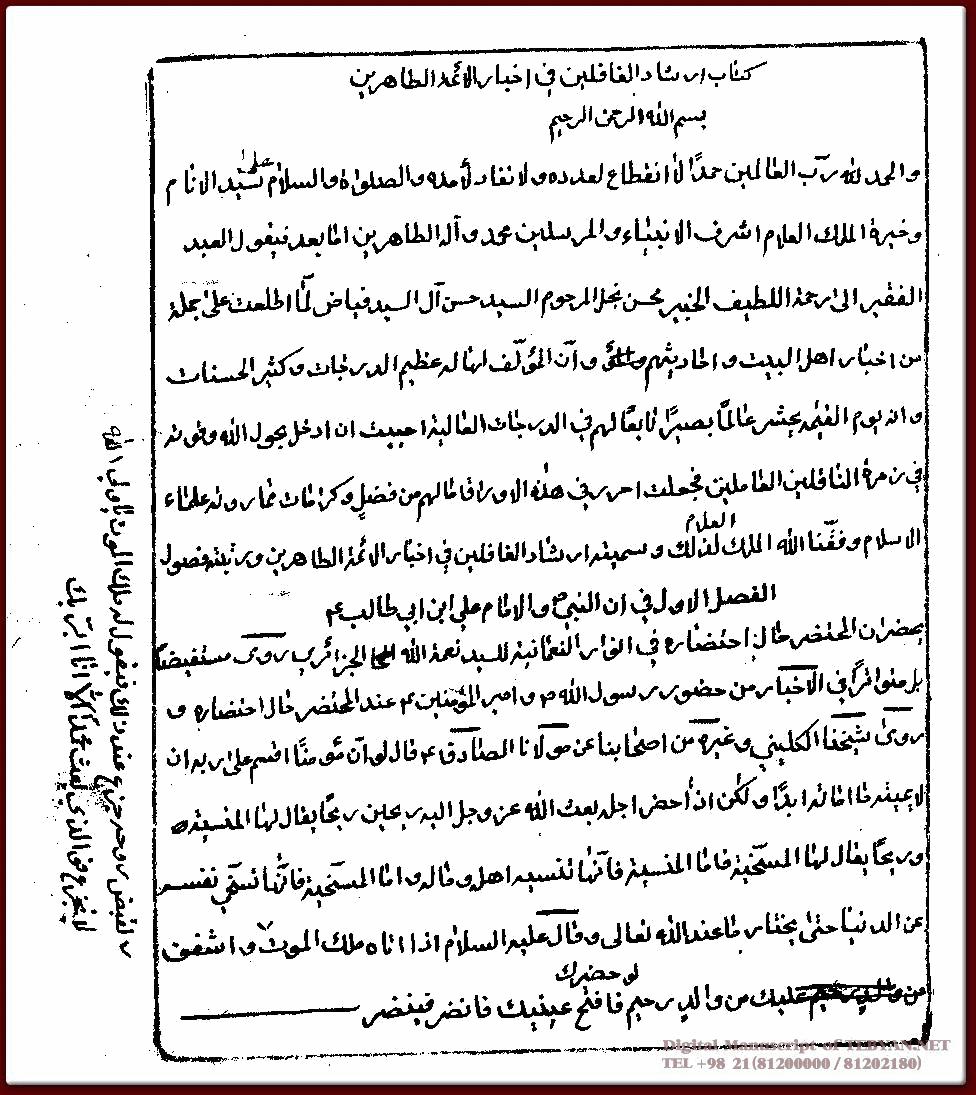 كتاب ارشاد الغافلين في اخبار الائمة الطاهرين
بسم الله الرحمن الرحيم
والحمد لله رب العالمين حمدًا لا انقطاع لعدده ولا نفاد لأمده والصلواة والسلام على سيد الانام
وخيرة الملك العلام اشرف الانبياء والمرسلين محمد وآله الطاهرين اما بعد فيقول العبد
الفقير الى رحمة اللطيف الخبير محسن نجل المرحوم السيد حسن آل السيد فياض لمّا اطلعت على جملة
من اخبار اهل البيت واحاديثهم وأن المؤلف لها له عظيم الدرجات وكثير الحسنات
وانه يوم القيمة يحشر عالمًا بصيرًا تابعًا لهم في الدرجات العالية احببت ان ادخل بحول الله وقوته
في زمرة الناقلين العاملين فجعلت احرر في هذه الاوراق ما لهم من فضلٍ وكرامات مما روته علماء
الاسلام وفقنا الله الملك العلام لذلك وسميته ارشاد الغافلين في اخبار الائمة الطاهرين ورتبته فصول
الفصل الاول في ان النبي ص والامام علي ابن ابي طالب ع
يحضران المحتضر حال احتضاره في انوار النعمانية للسيد نعمة الله الجزائري روى مستفيضًا
بل متواترًا في الاخبار من حضور رسول الله ص وامير المؤمنين ع عند المحتضر حال احتضاره و
روى شيخنا الكليني وغيره من اصحابنا عن مولانا الصادق ع قال لو أن مؤمنًا اقسم على ربه ان
لا يميته ما اماته ابدًا ولكن اذا حضر اجله بعث الله عز وجل اليه ريحين ريحًا يقال لها المنسية
وريحًا يقال لها المسخية فاما المنسية فانّها تنسيه اهله وماله واما المسخية فانّها تسخي نفسه
عن الدنيا حتى يختار ما عند الله تعالى وقال عليه السلام اذا اتاه ملك الموت واشفق
عليك من والدٍ رحيم لو حضرك فافتح عينيك فانضر فينضر
لقبض روحه جزع عند ذلك فيقول له ملك الموت يا ولي الله
لا تجزع فو الذي بعث محمدًا لأنا ابرّ بك
Digital Manuscript of TEBYAN.NET
TEL +98 21(81200000 / 81202180)